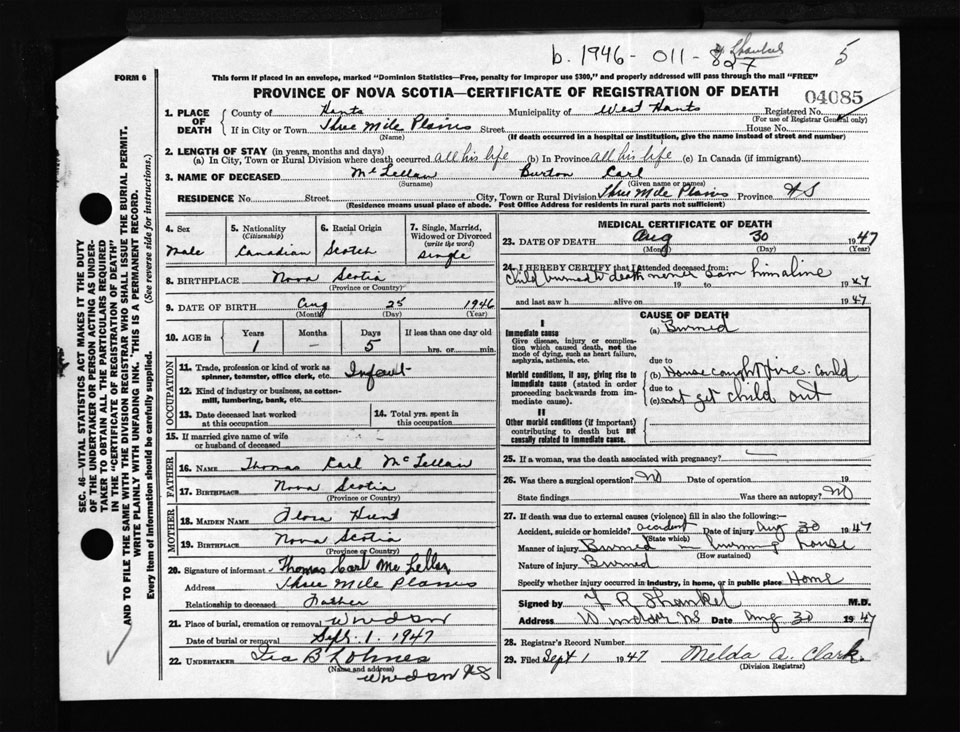 b. 1946 - 011 - 827
5
FORM 6
This form if placed in an envelope, marked "Dominion Statistics—Free, penalty for improper use $300," and properly addressed will pass through the mail "FREE"
PROVINCE OF NOVA SCOTIA—CERTIFICATE OF REGISTRATION OF DEATH
04085
1. PLACE OF DEATH
County of Hants Municipality of West Hants Registered No.
(For use of Registrar General only)
If in City or Town Three Mile Plains Street House No.
(Name) (If death occurred in a hospital or institution, give the name instead of street and number)
2. LENGTH OF STAY (in years, months and days)
(a) In City, Town or Rural Division where death occurred all his life (b) In Province all his life (c) In Canada (if immigrant)
3. NAME OF DECEASED McLellan Burton Carl
(Surname) (Given name or names)
RESIDENCE No. Street City, Town or Rural Division Three Mile Plains Province N S
(Residence means usual place of abode. Post Office Address for residents in rural parts not sufficient)
4. Sex
Male
5. Nationality
(Citizenship)
Canadian
6. Racial Origin
Scotch
7. Single, Married, Widowed or Divorced
(write the word)
Single
8. BIRTHPLACE Nova Scotia
(Province or Country)
9. DATE OF BIRTH Aug 25 1946
(Month) (Day) (Year)
10. AGE in
Years Months Days If less than one day old
1 – 5 hrs. or min.
OCCUPATION
11. Trade, profession or kind of work as spinner, teamster, office clerk, etc. Infant
12. Kind of industry or business, as cotton-mill, lumbering, bank, etc.
13. Date deceased last worked at this occupation
14. Total yrs. spent in this occupation
15. If married give name of wife or husband of deceased
FATHER
16. NAME Thomas Carl McLellan
17. BIRTHPLACE Nova Scotia
(Province or Country)
MOTHER
18. MAIDEN NAME Flora Hunt
19. BIRTHPLACE Nova Scotia
(Province or Country)
20. Signature of informant Thomas Carl McLellan
Address Three Mile Plains
Relationship to deceased Father
21. Place of burial, cremation or removal Windsor
Date of burial or removal Sept. 1. 1947
22. UNDERTAKER Ira B Lohnes
(Name and address)
Windsor NS
MEDICAL CERTIFICATE OF DEATH
23. DATE OF DEATH Aug 30 1947
(Month) (Day) (Year)
24. I HEREBY CERTIFY that I attended deceased from:
Child burned to death never saw him alive
19 to 1947
and last saw h alive on 1947
CAUSE OF DEATH
I
Immediate cause
Give disease, injury or complication which caused death, not the mode of dying, such as heart failure, asphyxia, asthenia, etc.
(a) Burned
due to
Morbid conditions, if any, giving rise to immediate cause (stated in order proceeding backwards from immediate cause).
(b) House caught fire. Could
due to
(c) not get child out
II
Other morbid conditions (if important) contributing to death but not causally related to immediate cause.
25. If a woman, was the death associated with pregnancy?
26. Was there a surgical operation? No Date of operation 19
State findings Was there an autopsy? No
27. If death was due to external causes (violence) fill in also the following:—
Accident, suicide or homicide? accident Date of injury Aug 30 1947
(State which)
Manner of injury Burned in burning house
(How sustained)
Nature of injury Burned
Specify whether injury occurred in industry, in home, or in public place Home
Signed by F R Shankel M.D.
Address Windsor NS Date Aug 30 1947
28. Registrar's Record Number
29. Filed Sept 1 1947 Melda A. Clark
(Division Registrar)
SEC. 46—VITAL STATISTICS ACT MAKES IT THE DUTY
OF THE UNDERTAKER OR PERSON ACTING AS UNDER-
TAKER TO OBTAIN ALL THE PARTICULARS REQUIRED
IN THE "CERTIFICATE OF REGISTRATION OF DEATH"
AND TO FILE THE SAME WITH THE DIVISION REGISTRAR WHO SHALL ISSUE THE BURIAL PERMIT.
WRITE PLAINLY WITH UNFADING INK. THIS IS A PERMANENT RECORD.
Every item of information should be carefully supplied. (See reverse side for instructions.)